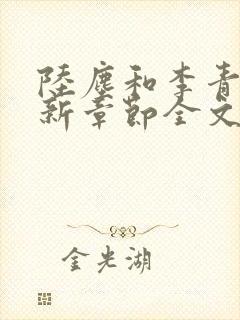 陸塵和李青
新章節全文
金光湖